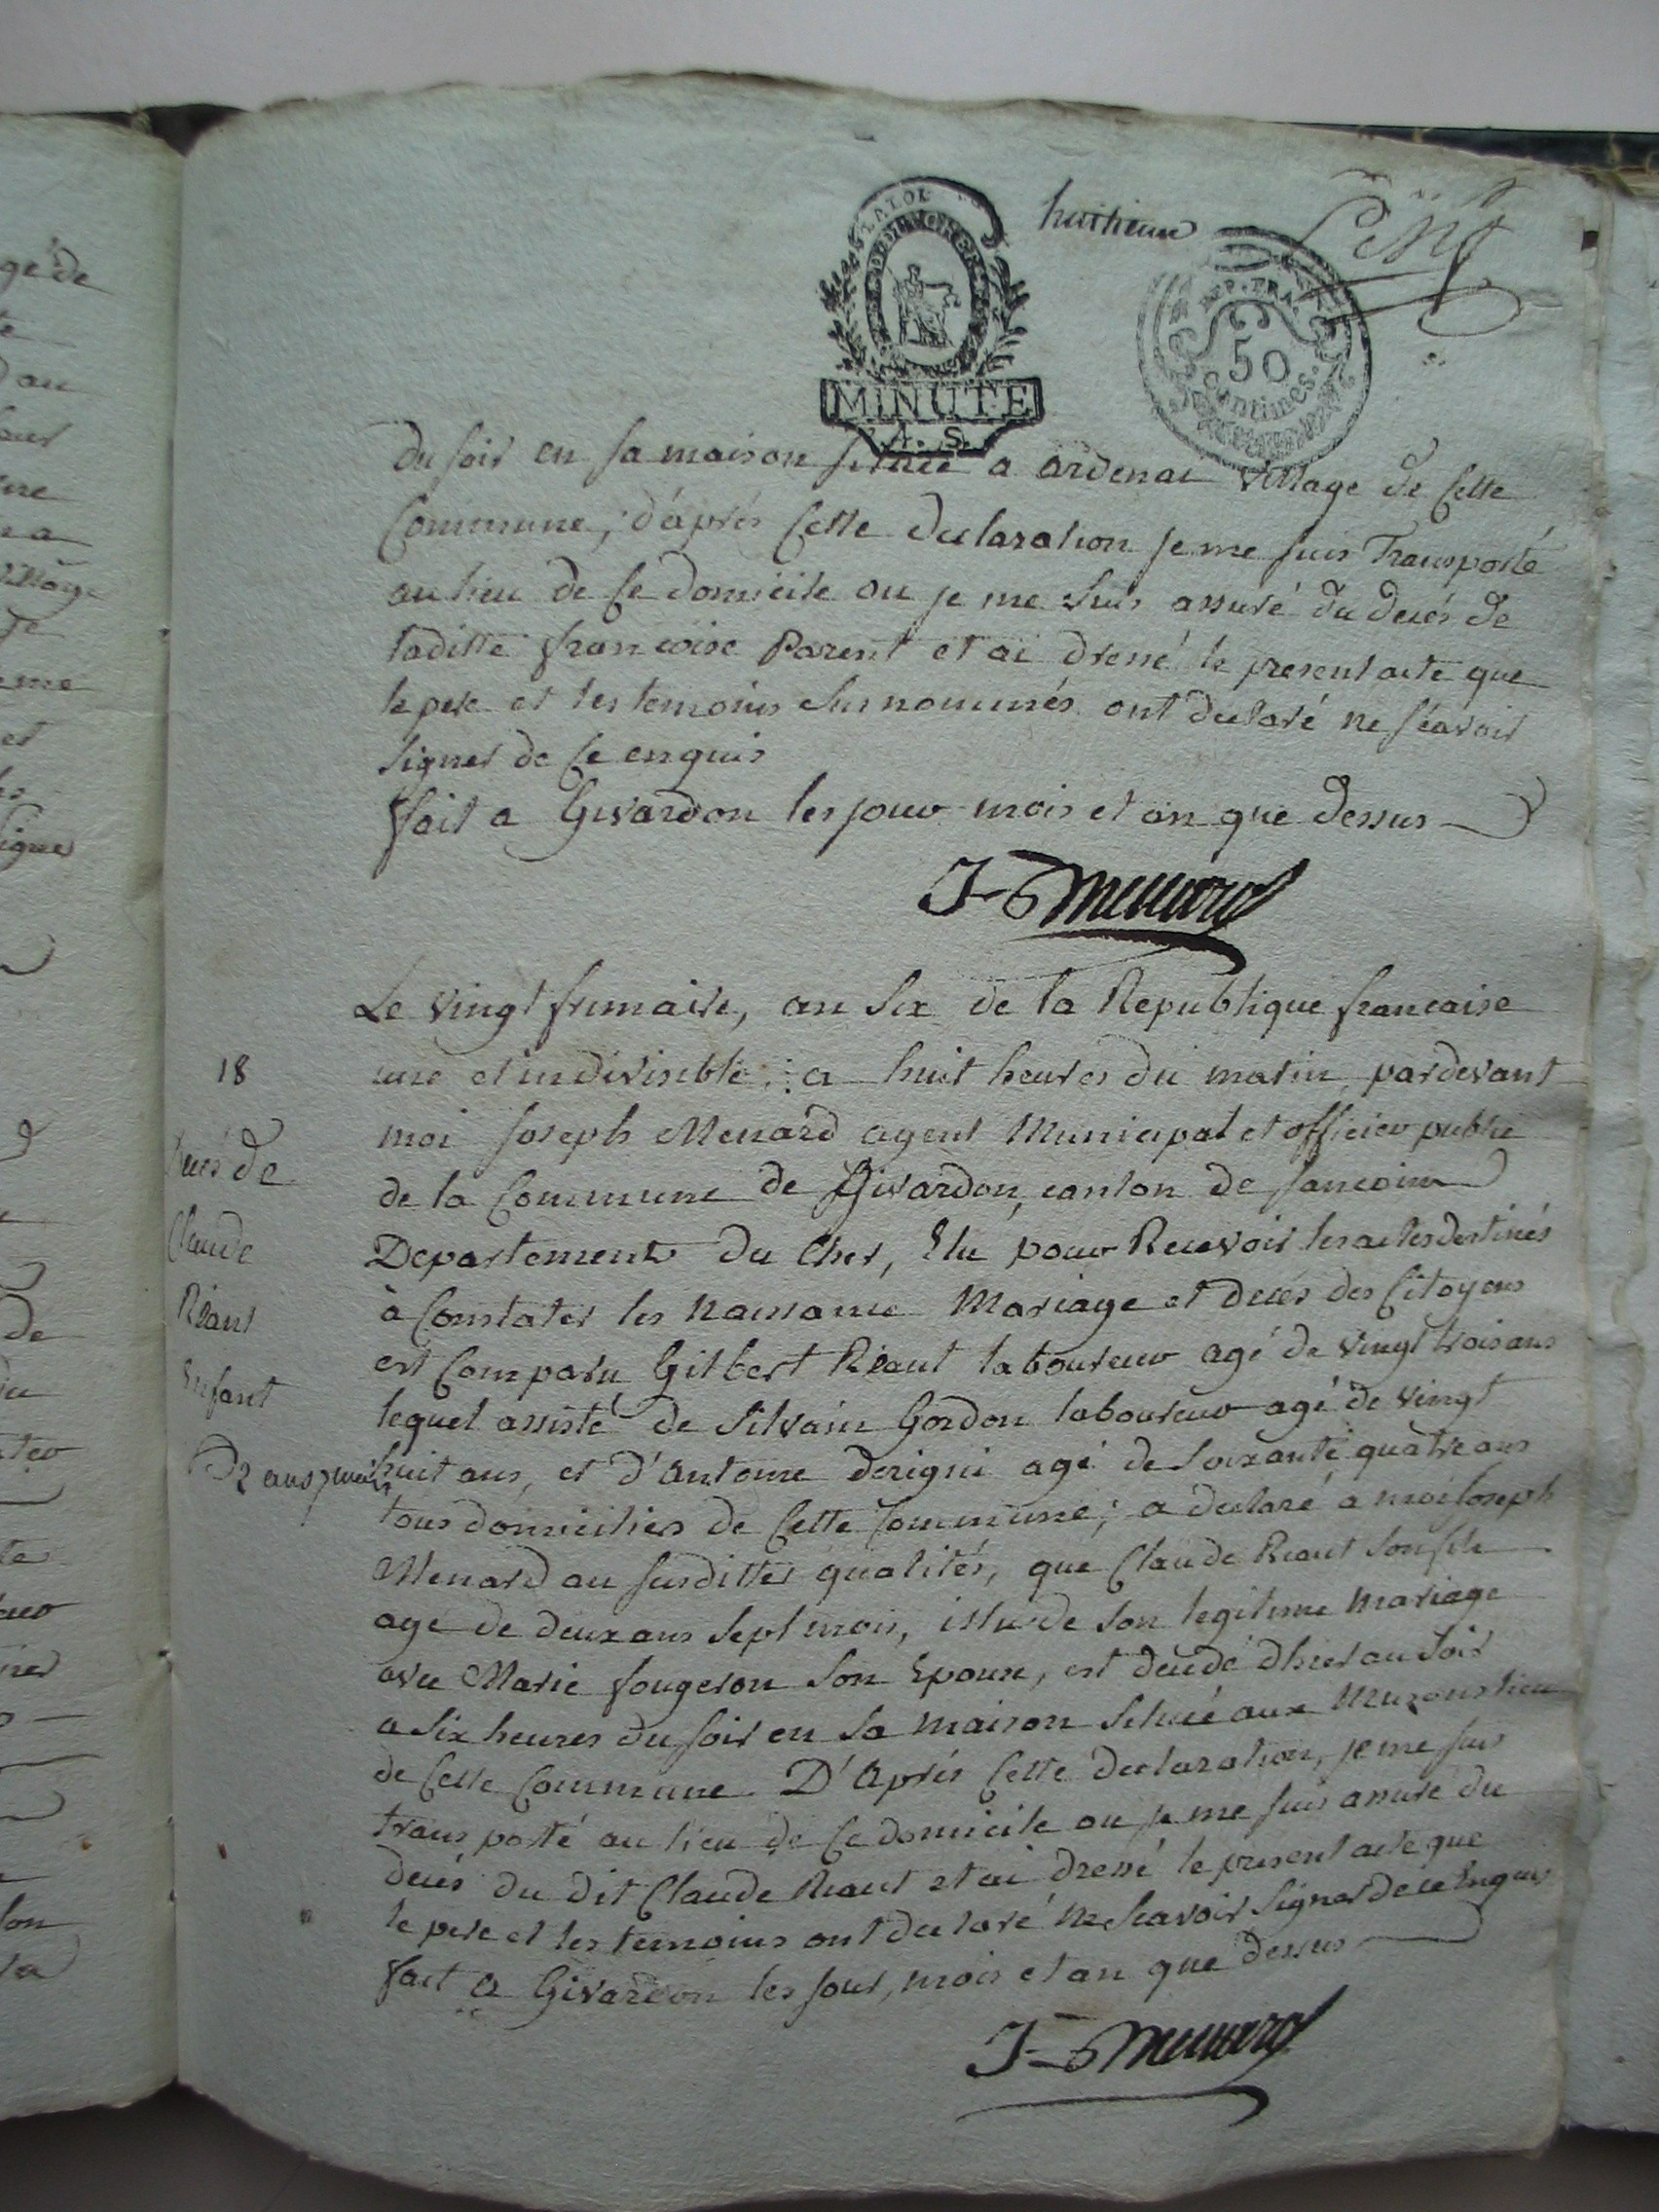 huitieme
LA LOI
MINUTE
A. S.
REP. FRA.
50
Centimes.
du soir en sa maison située a ardenai village de cette
commune; d'aprés cette declaration je me suis Transporté
au lieu de ce domicile ou je me suis assuré du decés de
laditte francoise Parent et ai dressé le present acte que
le pere et les temoins sus nommés ont declaré ne scavoir
signer de ce enquis
fait a Givardon les jour mois et an que dessus
J Menard
Le vingt frimaire, an six de la Republique francaise
18
une et indivisible; a huit heures du matin, pardevant
moi Joseph Menard agent Municipal et officier public
decés de
de la commune de Givardon, canton de sancoins
Claude
Departement du Cher, Elu pour Recevoir les actes destinés
Réant
à constater les naissance Mariage et decés des Citoyens
Enfant
est comparu Gilbert Réant laboureur agé de vingt trois ans
lequel assisté de Silvain Gordon laboureur agé de vingt
D 2 ans 7 mois
huit ans, et d'antoine derigni agé de soixante quatre ans
tous domiciliés de cette commune; a declaré a moi Joseph
Menard au susdittes qualités, que Claude Reant son fils
age de deux ans sept mois, issu de son legitime mariage
avec Marie fougeron son Epouse, est decedé d'hier au soir
a six heures du soir en sa maison située aux Muzons lieu
de cette commune. D'Aprés cette declaration, je me suis
transporté au lieu de ce domicile ou je me suis assuré du
decés du dit Claude Reant et ai dressé le present acte que
le pere et les temoins ont declaré ne scavoir signer de ce Enquis
fait a Givardon les jour, mois et an que dessus
J Menard